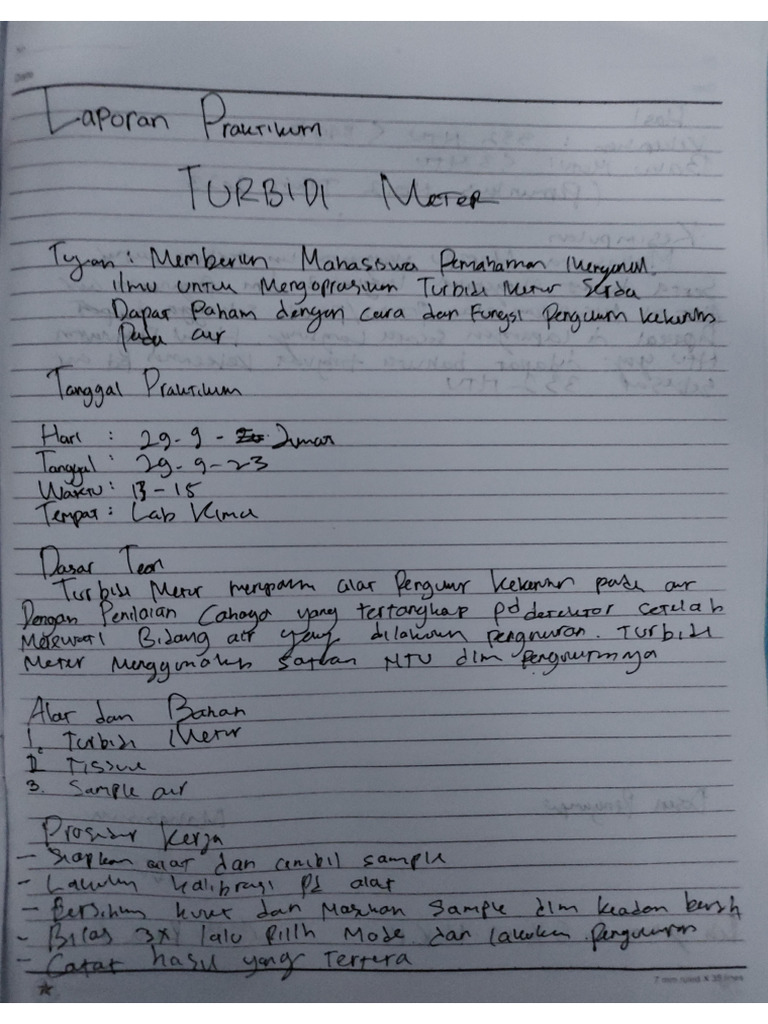 Laporan Praktikum
TURBIDI METER
Tujuan : Memberikan Mahasiswa Pemahaman Mengenai
ilmu untuk Mengoprasikan Turbidi Meter Serta
Dapat Paham dengan Cara dan Fungsi Pengukuran kekeruhan
Pada air
Tanggal Praktikum
Hari : 29 - 9 - Jumat
Tanggal : 29 - 9 - 23
Waktu : 13 - 15
Tempat : Lab Kimia
Dasar Teori
Turbidi Meter merupakan alat Pengukur Kekeruhan pada air
Dengan Penilaian Cahaya yang tertangkap pd detektor setelah
Melewati Bidang air yang dilakukan pengukuran. Turbidi
Meter Menggunakan Satuan NTU dlm pengukurannya
Alat dan Bahan
1. Turbidi Meter
2 Tissue
3. Sample air
Prosedur Kerja
- Siapkan alat dan ambil sample
- Lakukan kalibrasi pd alat
- Bersihkan kuvet dan Masukan Sample dlm keadan bersih
- Bilas 3x lalu Pilih Mode dan lakukan Pengukuran
- Catat hasil yang Tertera